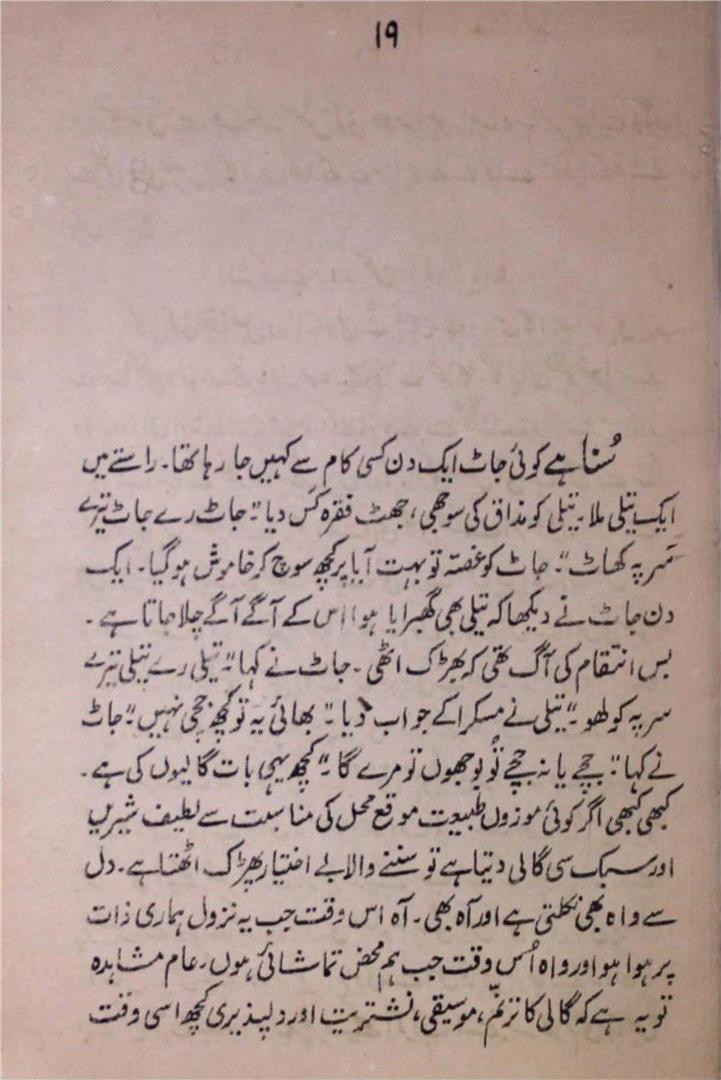 ۱۹
سُنا ہے کوئی جاٹ ایک دن کسی کام سے کہیں جا رہا تھا۔ راستے میں
ایک تیلی ملا۔ تیلی کو مذاق کی سوجھی، جھٹ فقرہ کس دیا "جاٹ رے جاٹ تیرے
سر پہ کھاٹ"۔ جاٹ کو غصّہ تو بہت آیا پر کچھ سوچ کر خاموش ہو گیا۔ ایک
دن جاٹ نے دیکھا کہ تیلی بھی گھبرایا ہوا اس کے آگے آگے چلا جاتا ہے۔
بس انتقام کی آگ تھی کہ بھڑک اٹھی۔ جاٹ نے کہا "تیلی رے تیلی تیرے
سر پہ کولھو" تیلی نے مسکرا کے جواب دیا۔ "بھائی یہ تو کچھ جچی نہیں" جاٹ
نے کہا "جچے یا نہ جچے تُو بوجھوں تو مرے گا۔" کچھ یہی بات گالیوں کی ہے۔
کبھی کبھی اگر کوئی موزوں طبیعت موقع محل کی مناسبت سے لطیف شیریں
اور سبک سی گالی دیتا ہے تو سننے والا بے اختیار پھڑک اٹھتا ہے۔ دل
سے واہ بھی نکلتی ہے اور آہ بھی۔ آہ اس وقت جب یہ نزول ہماری ذات
پر ہوا ہو اور واہ اُس وقت جب ہم محض تماشائی ہوں۔ عام مشاہدہ
تو یہ ہے کہ گالی کا ترنّم، موسیقی، نشتریت اور دلپذیری کچھ اسی وقت